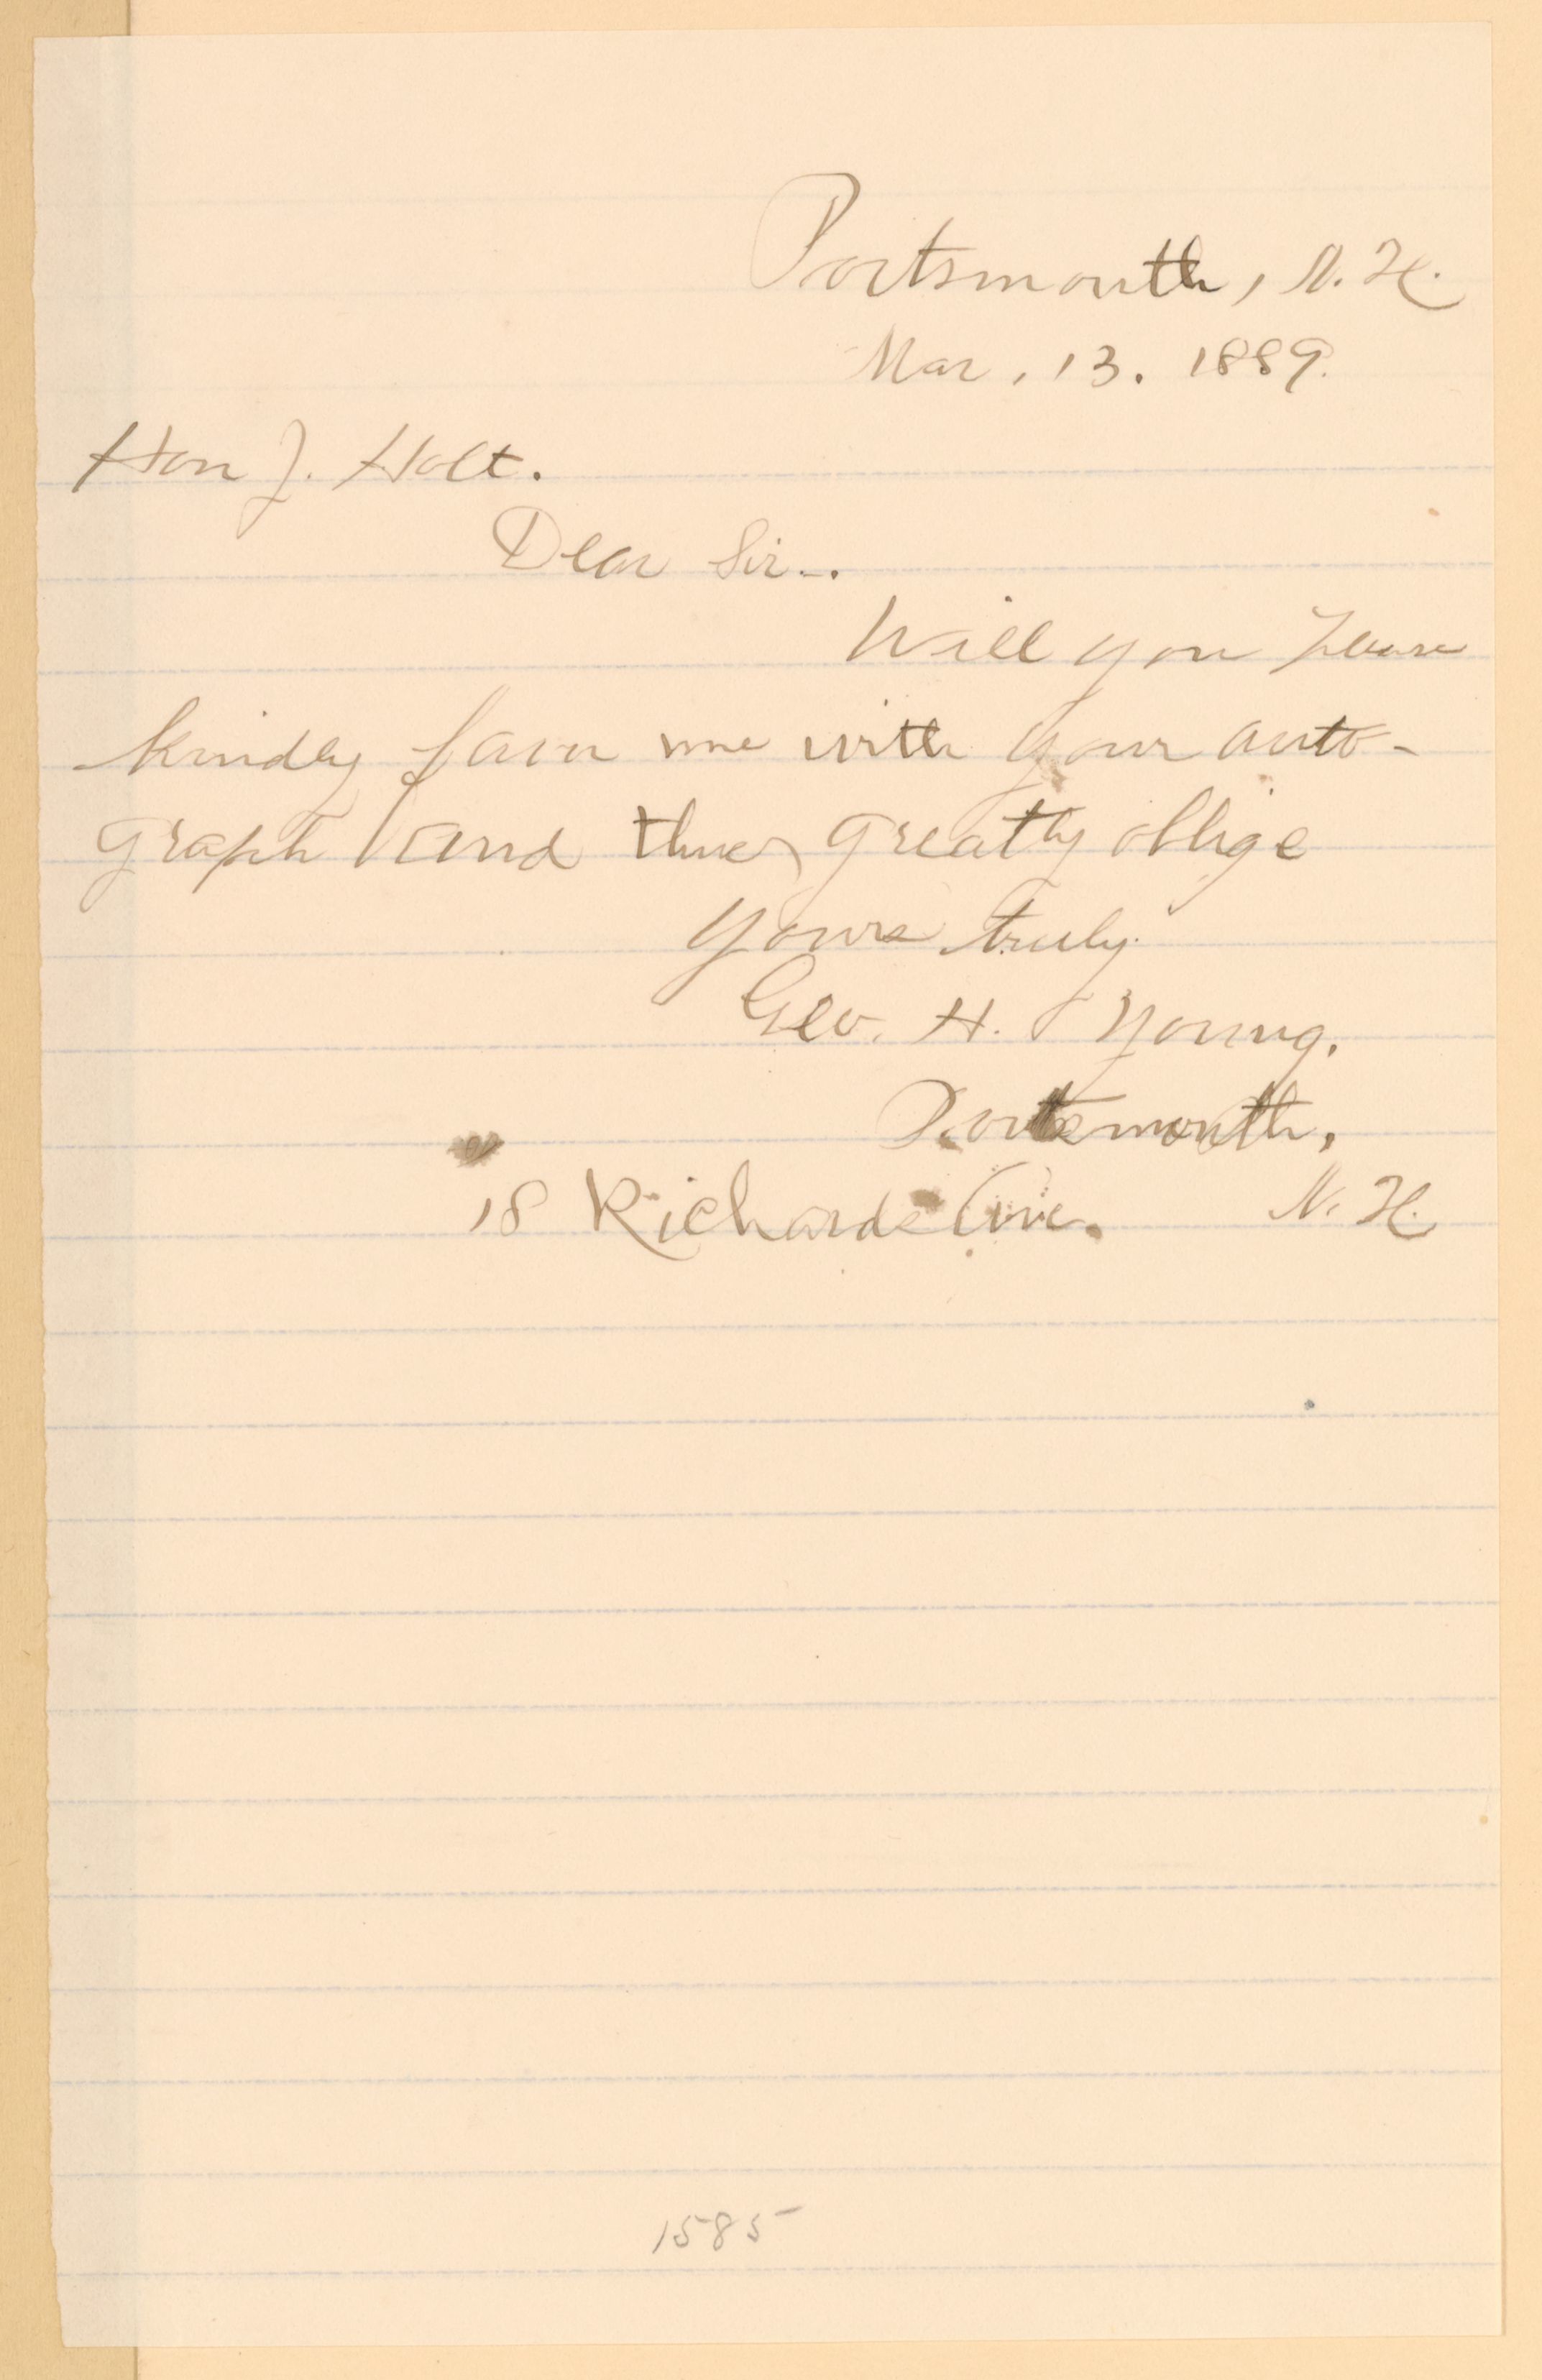 Portsmouth, N. H.
Mar, 13. 1889.
Hon J. Holt.
Dear Sir..
Will you please
kindly favor me with your auto-
graph and thus greatly oblige
yours truly
Geo. H. Young.
Portsmouth,
18 Richards Ave. N. H.
1585